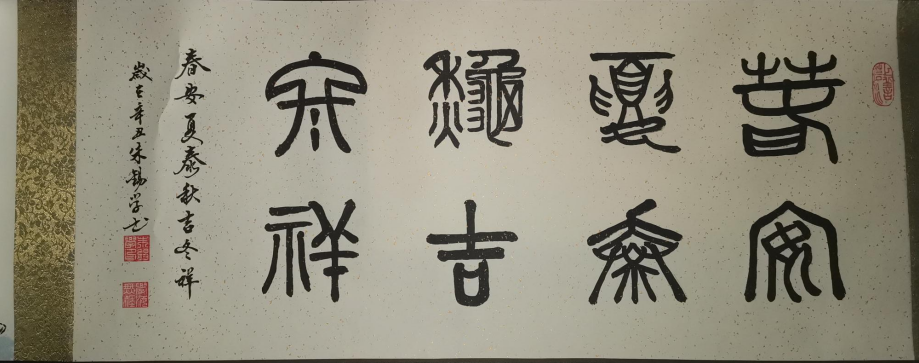 春安
夏泰
秋吉
冬祥
春安夏泰秋吉冬祥
歲在辛丑朱錫学书